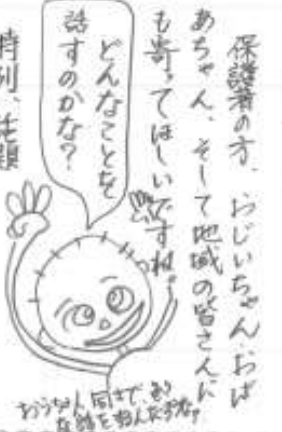 保護者の方、おじいちゃん・おば
あちゃん、そして地域の皆さんに
も寄ってほしいですね。
どんなことを
話すのかな？
特別、話題